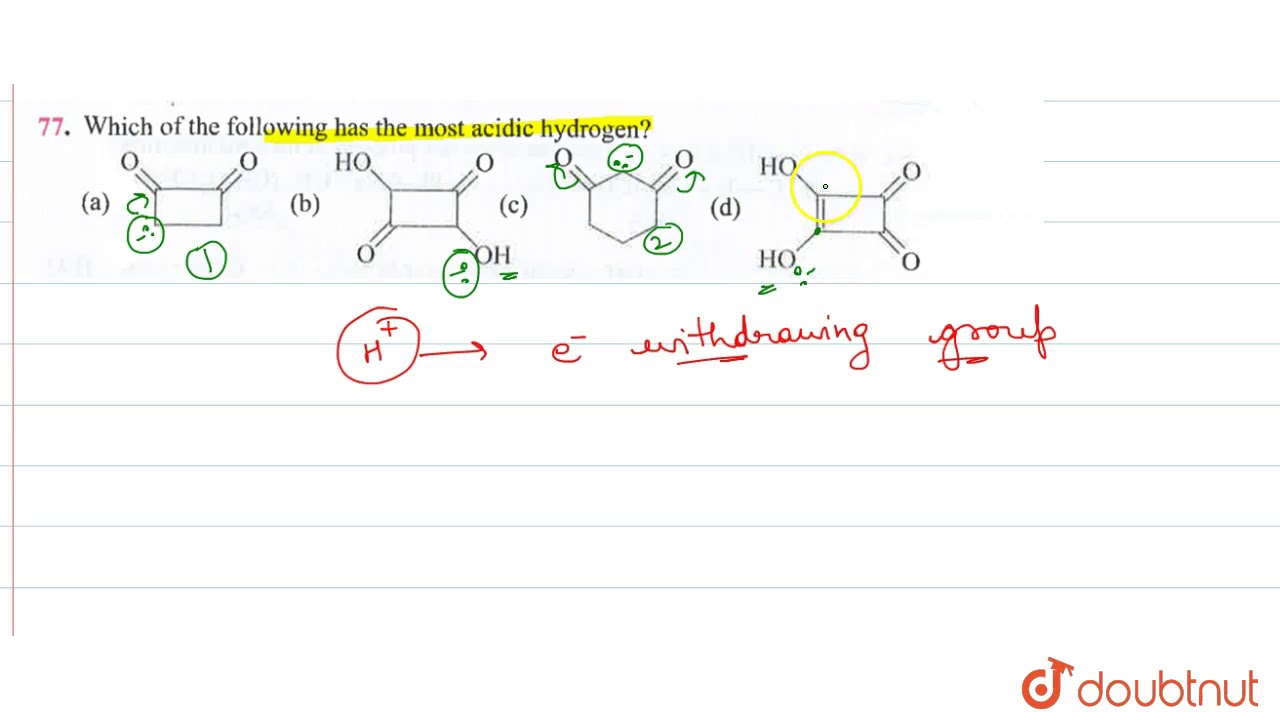 77. Which of the following has the most acidic hydrogen?
(a) O O 1
(b) HO O O OH
(c) O O 2
(d) HO HO O O
H+ → e- withdrawing group
doubtnut